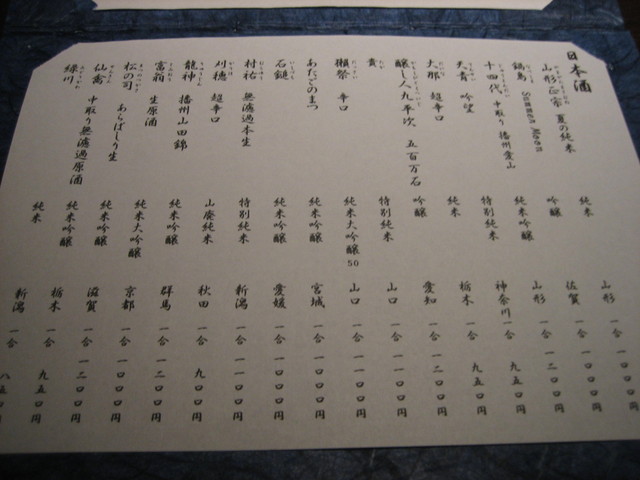 日本酒
山形正宗 夏の純米 純米 山形 一合 一〇〇〇円
鍋島 Summer Moon 吟醸 佐賀 一合 一一〇〇円
十四代 中取り 播州愛山 純米吟醸 山形 一合 一二〇〇円
天青 吟望 特別純米 神奈川 一合 九五〇円
大那 超辛口 純米 栃木 一合 九五〇円
醸し人九平次 五百万石 吟醸 愛知 一合 一二〇〇円
貴 特別純米 山口 一合 一〇〇〇円
獺祭 辛口 純米大吟醸50 山口 一合 一一〇〇円
あたごのまつ 純米吟醸 宮城 一合 一〇〇〇円
石鎚 純米吟醸 愛媛 一合 一一〇〇円
村祐 無濾過本生 特別純米 新潟 一合 一一〇〇円
刈穂 超辛口 山廃純米 秋田 一合 九〇〇円
龍神 播州山田錦 純米吟醸 群馬 一合 一二〇〇円
富翁 生原酒 純米大吟醸 京都 一合 一〇〇〇円
松の司 あらばしり生 純米吟醸 滋賀 一合 一二〇〇円
仙禽 中取り無濾過原酒 純米吟醸 栃木 一合 九五〇円
緑川 純米 新潟 一合 八五〇円